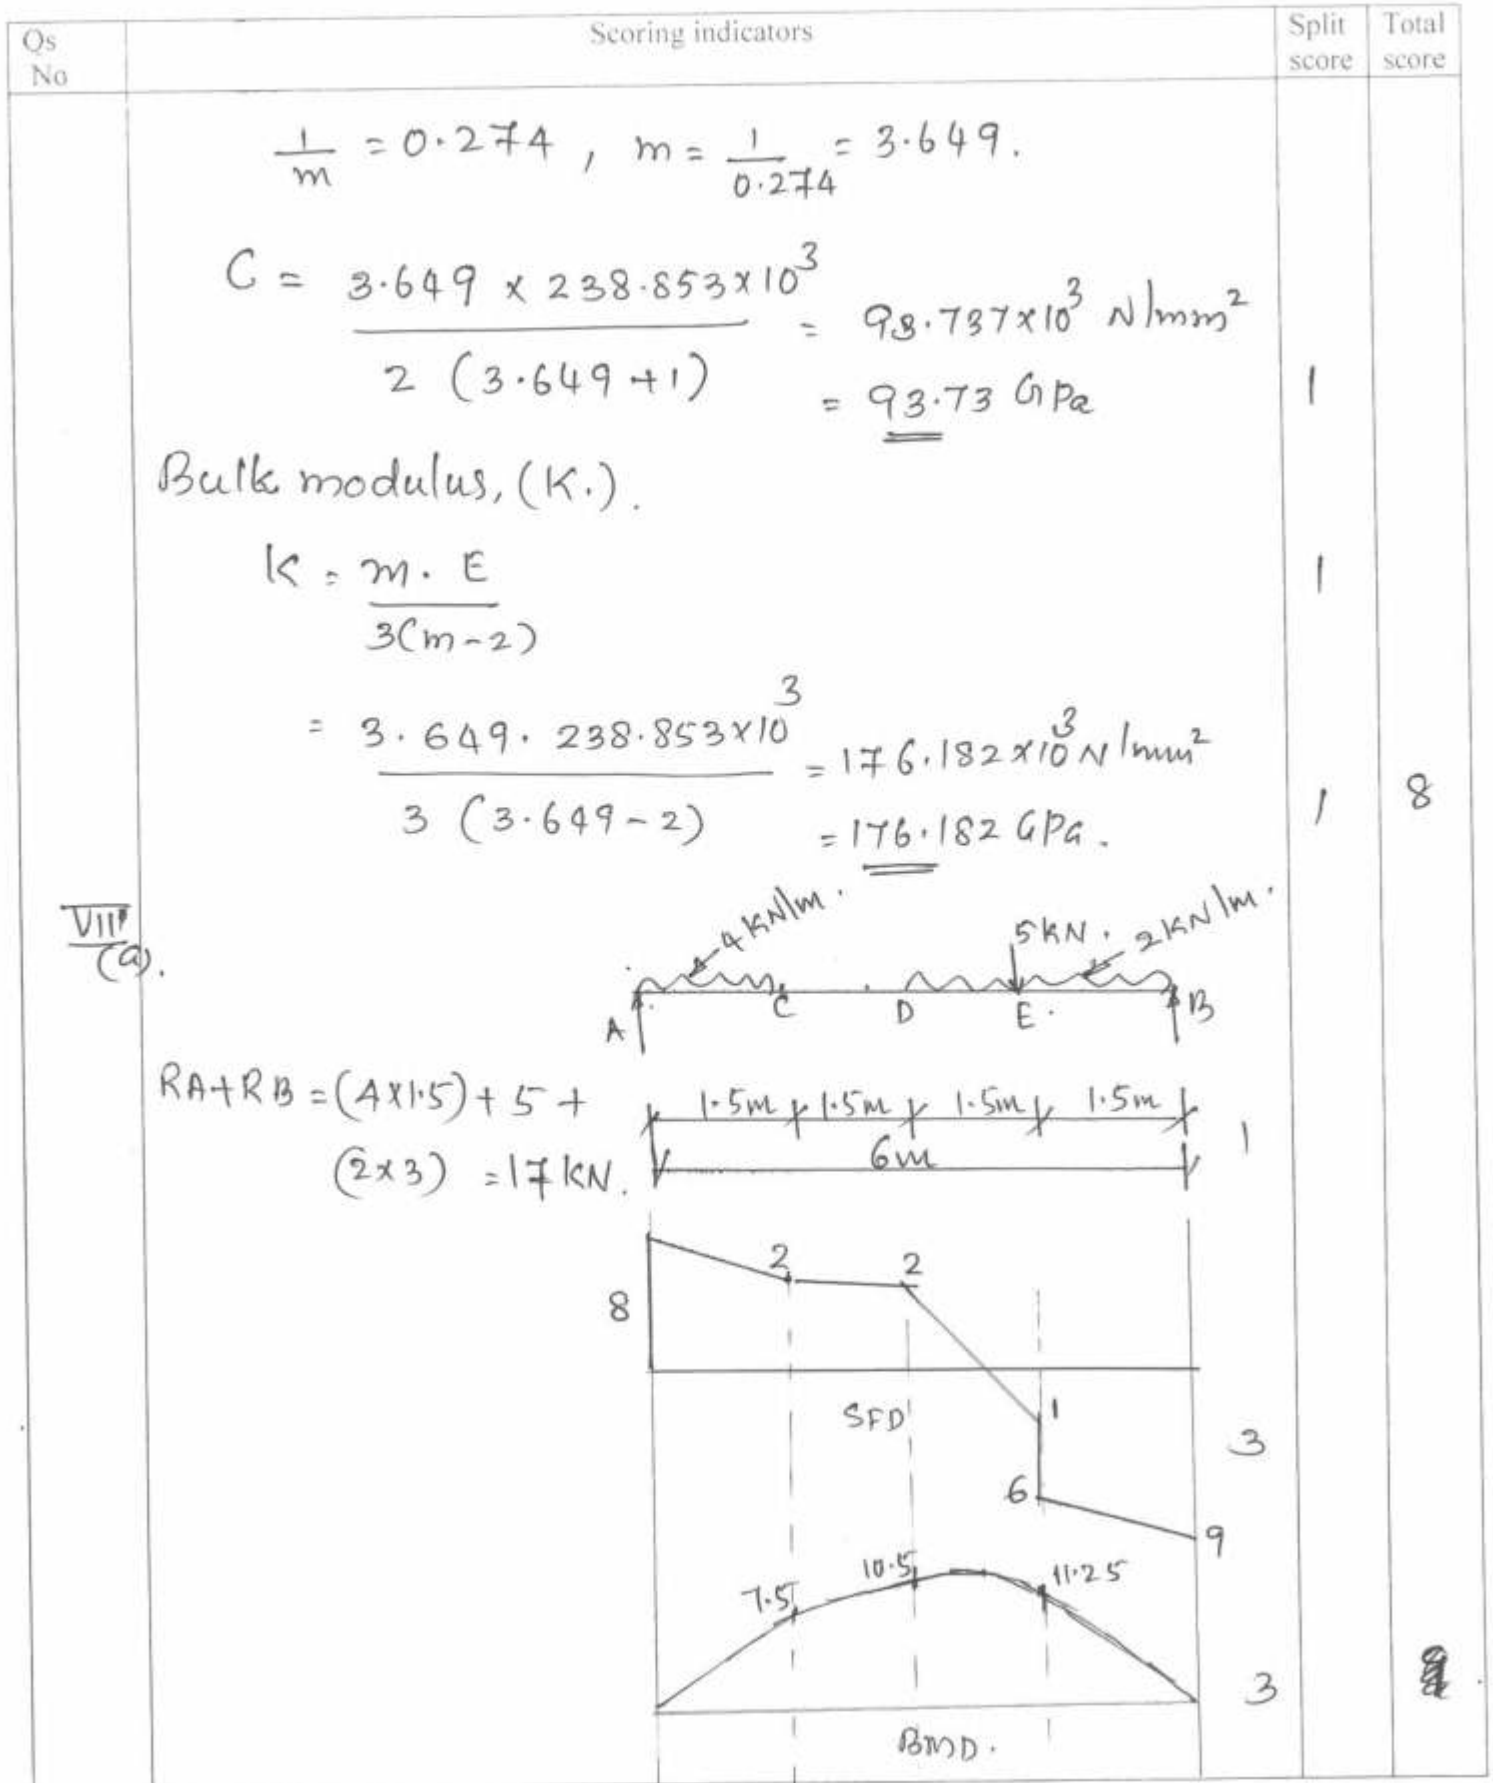 Qs No | Scoring indicators | Split score | Total score
1/m = 0.274 , m = 1/0.274 = 3.649.
C = 3.649 x 238.853x10^3 / 2 (3.649+1) = 93.737x10^3 N/mm^2
= 93.73 GPa 1
Bulk modulus, (K.).
K = m. E / 3(m-2) 1
= 3.649. 238.853x10^3 / 3 (3.649-2) = 176.182x10^3 N/mm^2
= 176.182 GPa. 1 8
VII (a).
4 KN/m. 5 KN. 2 KN/m.
A C D E. B
RA+RB = (4x1.5) + 5 +
(2x3) = 17 KN.
1.5m 1.5m 1.5m 1.5m 1
6m
8 2 2
SFD 1 3
6
9
7.5 10.5 11.25
3
BMD.